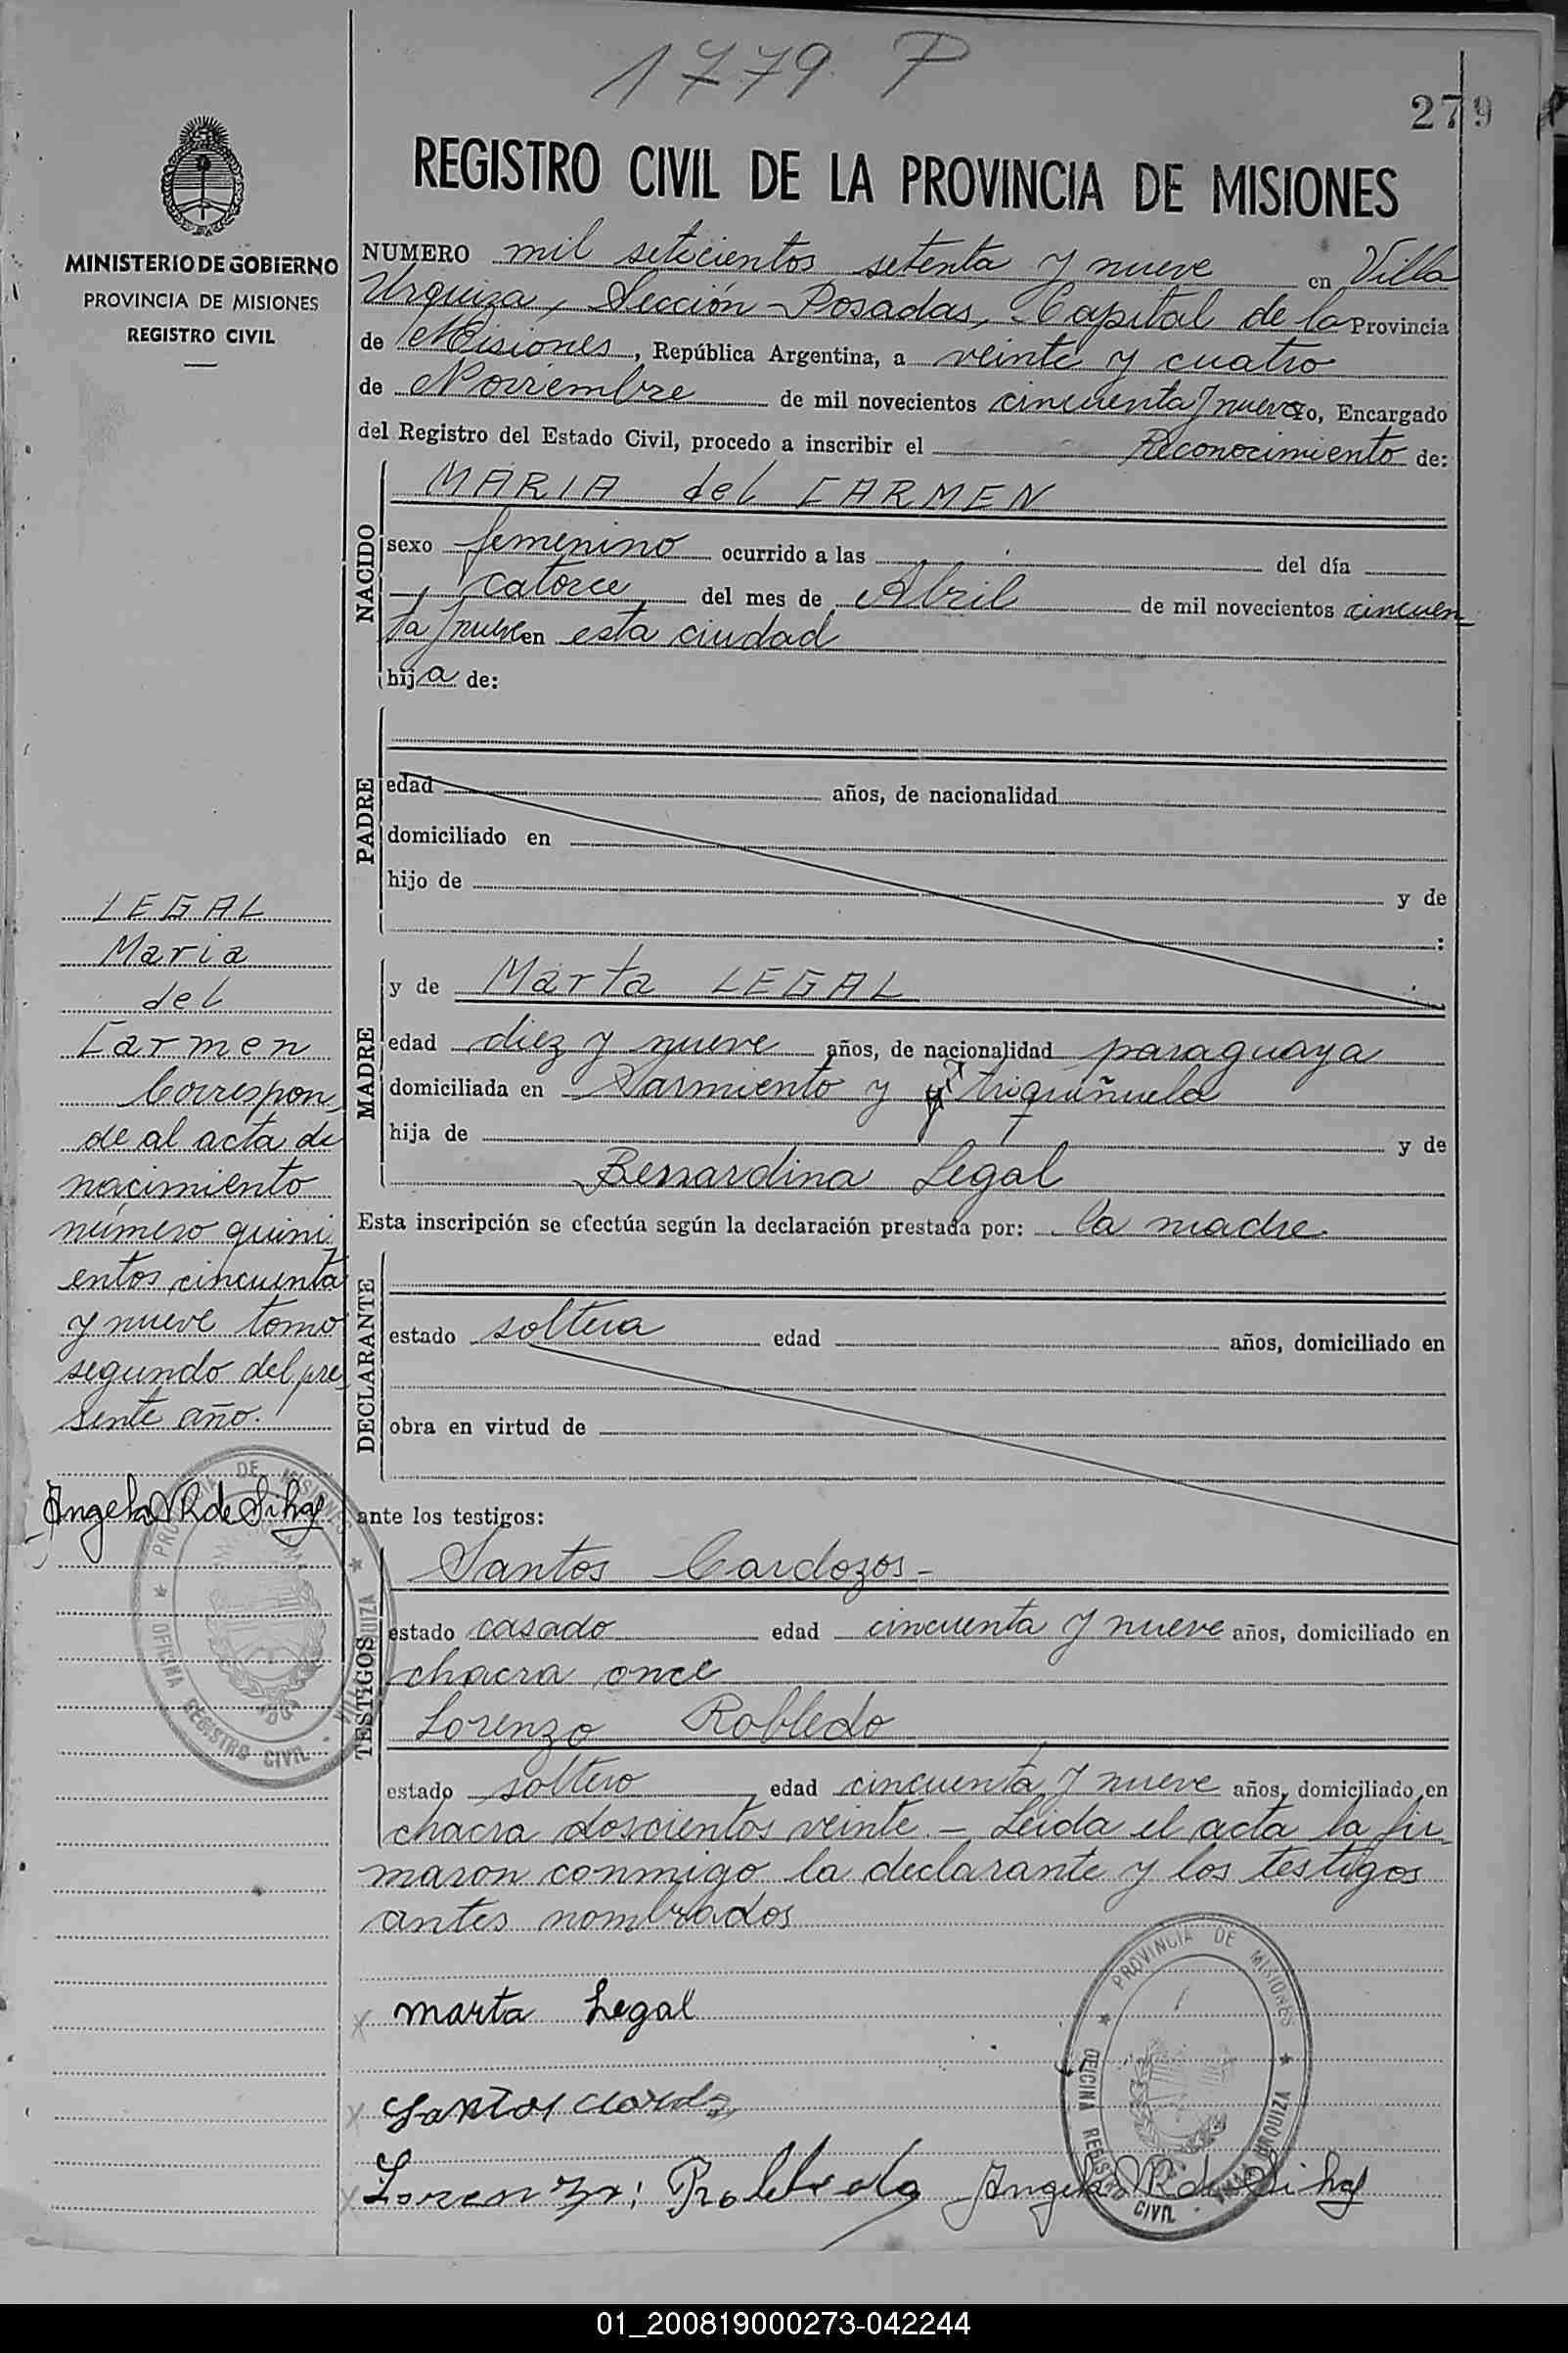 1779 P
279
REGISTRO CIVIL DE LA PROVINCIA DE MISIONES
MINISTERIO DE GOBIERNO
PROVINCIA DE MISIONES
REGISTRO CIVIL
NUMERO mil seteicientos setenta y nueve en Villa
Urquiza, Sección Posadas, Capital de la Provincia
de Misiones, República Argentina, a veinte y cuatro
de Noviembre de mil novecientos cincuenta y nueve yo, Encargado
del Registro del Estado Civil, procedo a inscribir el Reconocimiento de:
NACIDO
MARIA del CARMEN
sexo femenino ocurrido a las del día
catorce del mes de Abril de mil novecientos cincuen
ta y nueve en esta ciudad
hija de:
PADRE
edad años, de nacionalidad
domiciliado en
hijo de y de
:
MADRE
y de Marta LEGAL
edad diez y nueve años, de nacionalidad paraguaya
domiciliada en Sarmiento y Triquiñuela
hija de y de
Bernardina Legal
Esta inscripción se efectúa según la declaración prestada por: la madre
DECLARANTE
estado soltera edad años, domiciliado en
obra en virtud de
ante los testigos:
TESTIGOS
Santos Cardozos-
estado casado edad cincuenta y nueve años, domiciliado en
chacra once
Lorenzo Robledo
estado soltero edad cincuenta y nueve años, domiciliado en
chacra doscientos veinte.- Leida el acta la fir
maron conmigo la declarante y los testigos
antes nombrados
x marta Legal
x Santos
x Lorenzo: Robledo
LEGAL
Maria
del
Carmen
Correspon
de al acta de
nacimiento
número quini
entos cincuenta
y nueve tomo
segundo del pre
sente año.
PROVINCIA DE MISIONES
OFICINA REGISTRO CIVIL - VILLA URQUIZA
PROVINCIA DE MISIONES
OFICINA REGISTRO CIVIL - VILLA URQUIZA
01_200819000273-042244